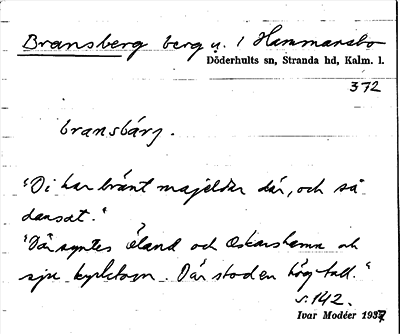 Bransberg berg u. 1 Hammarsbo
Döderhults sn, Stranda hd, Kalm. l.
372
bransbärj.
"Di har bränt majeldar där, och så
dansat."
"Där syntes Öland och Oskarshamn och
sju kyrktorn. Där stod en hög tall."
s. 142.
Ivar Modéer 1937